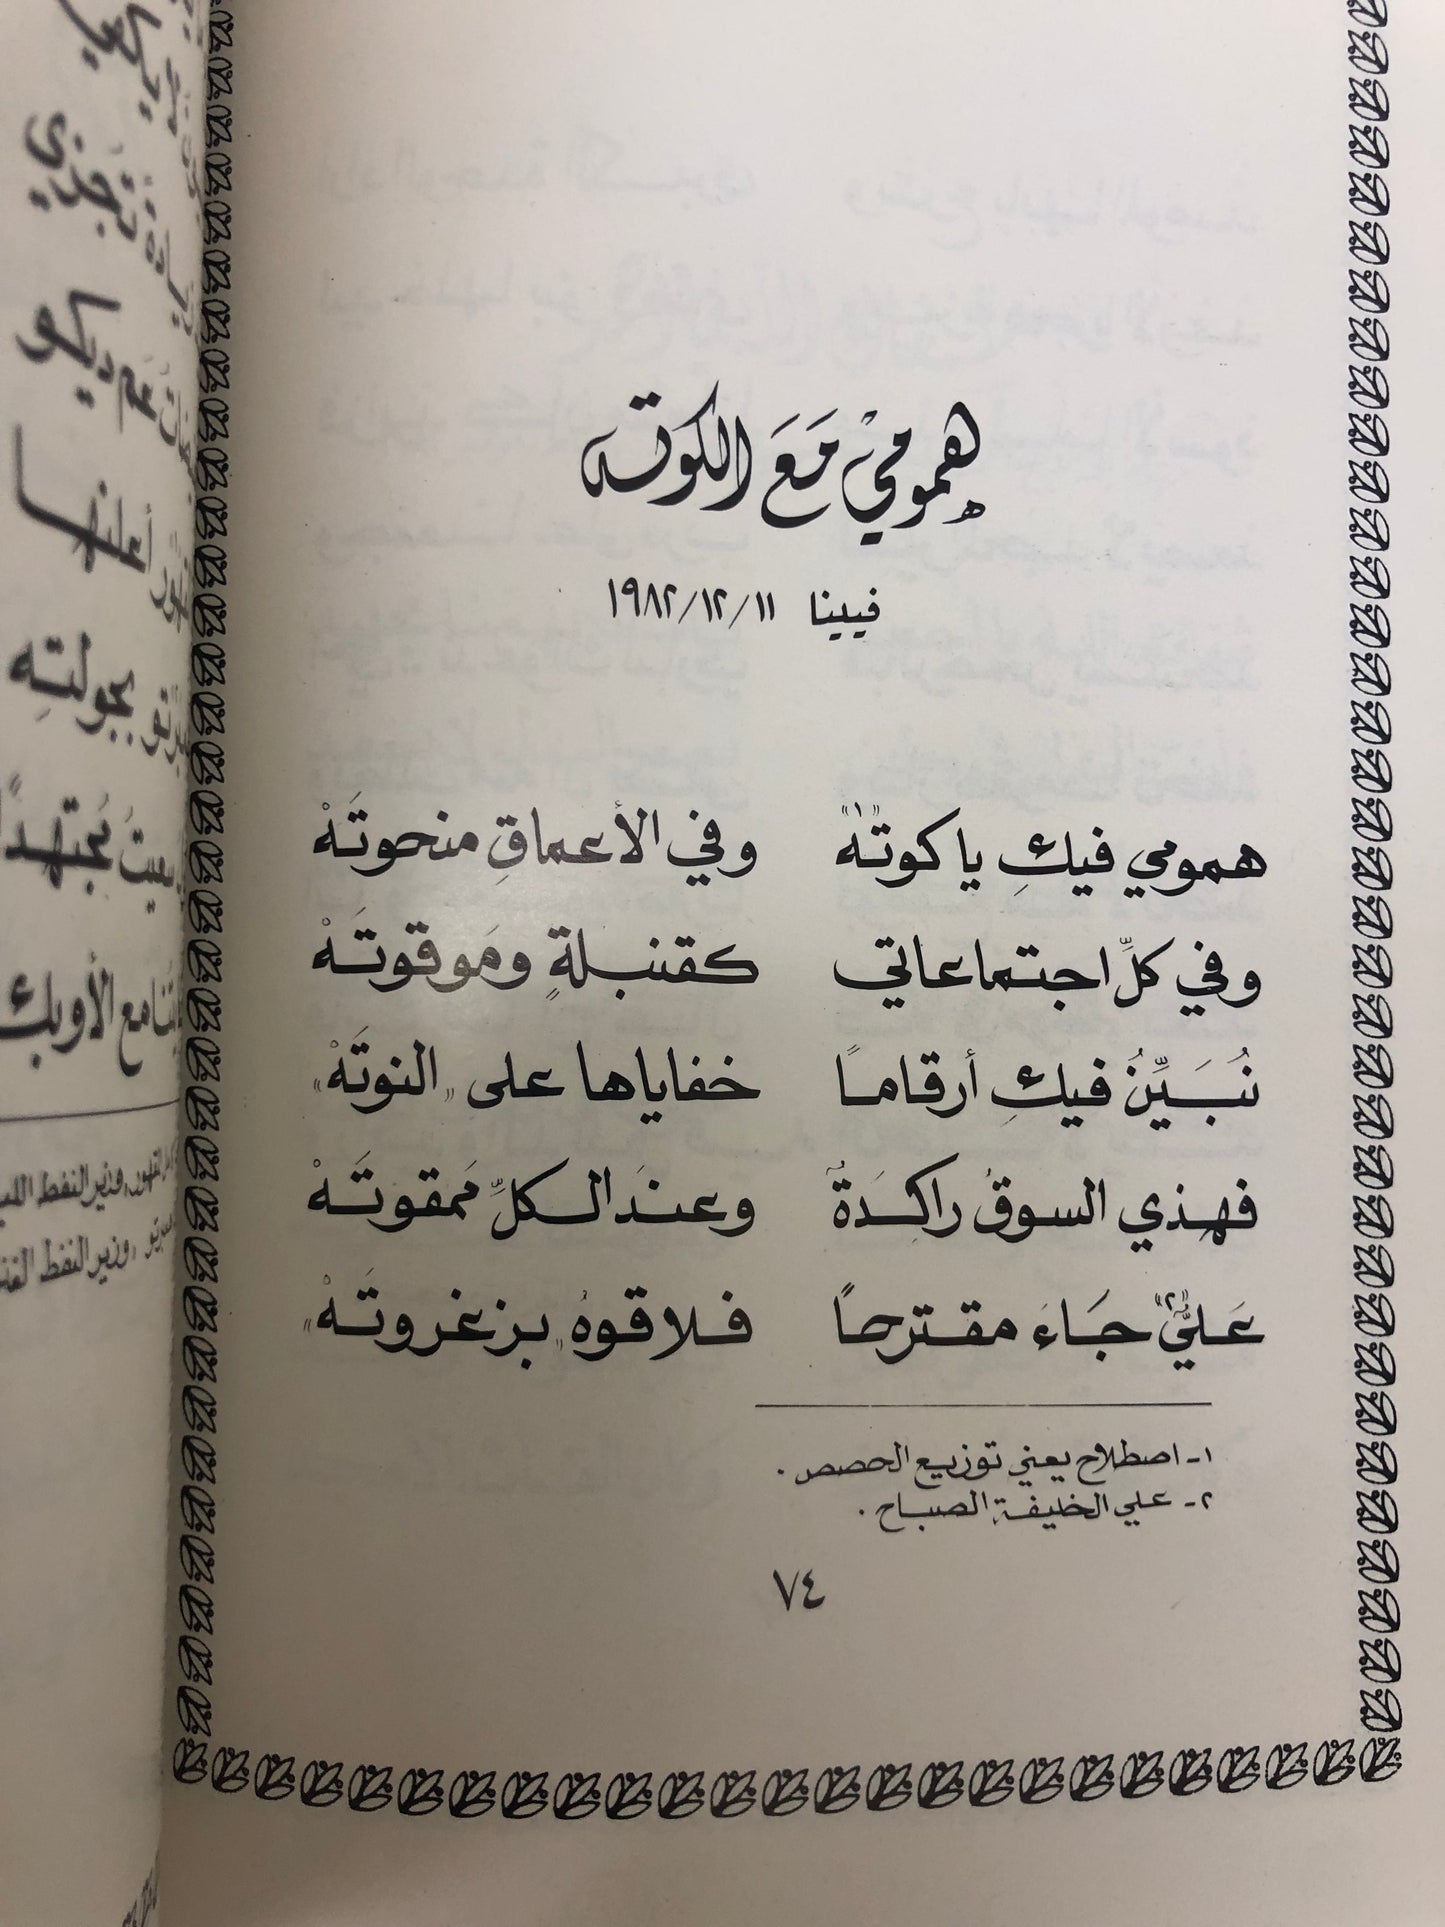 هُمومي مَعَ الكوته
فيينا ١٩٨٢/١٢/١١
همومي فيكِ يا كوتَهْ "١" وفي الأعماقِ منحوتَهْ
وفي كلِّ اجتماعاتي كقنبلةٍ ومَوقوتَهْ
نُبَيِّنُ فيكِ أرقاماً خفاياها على "النوتَهْ"
فهذي السوقُ راكِدَةٌ وعندَ الكلِّ ممقوتَهْ
عَليٌّ "٢" جَاءَ مقترحاً فلاقوهُ "بزغروتَهْ"
١- اصطلاح يعني توزيع الحصص.
٢- علي الخليفة الصباح.
٧٤
بجولتِهِ
مع الأوبك
وزير النفط
وزير النفط